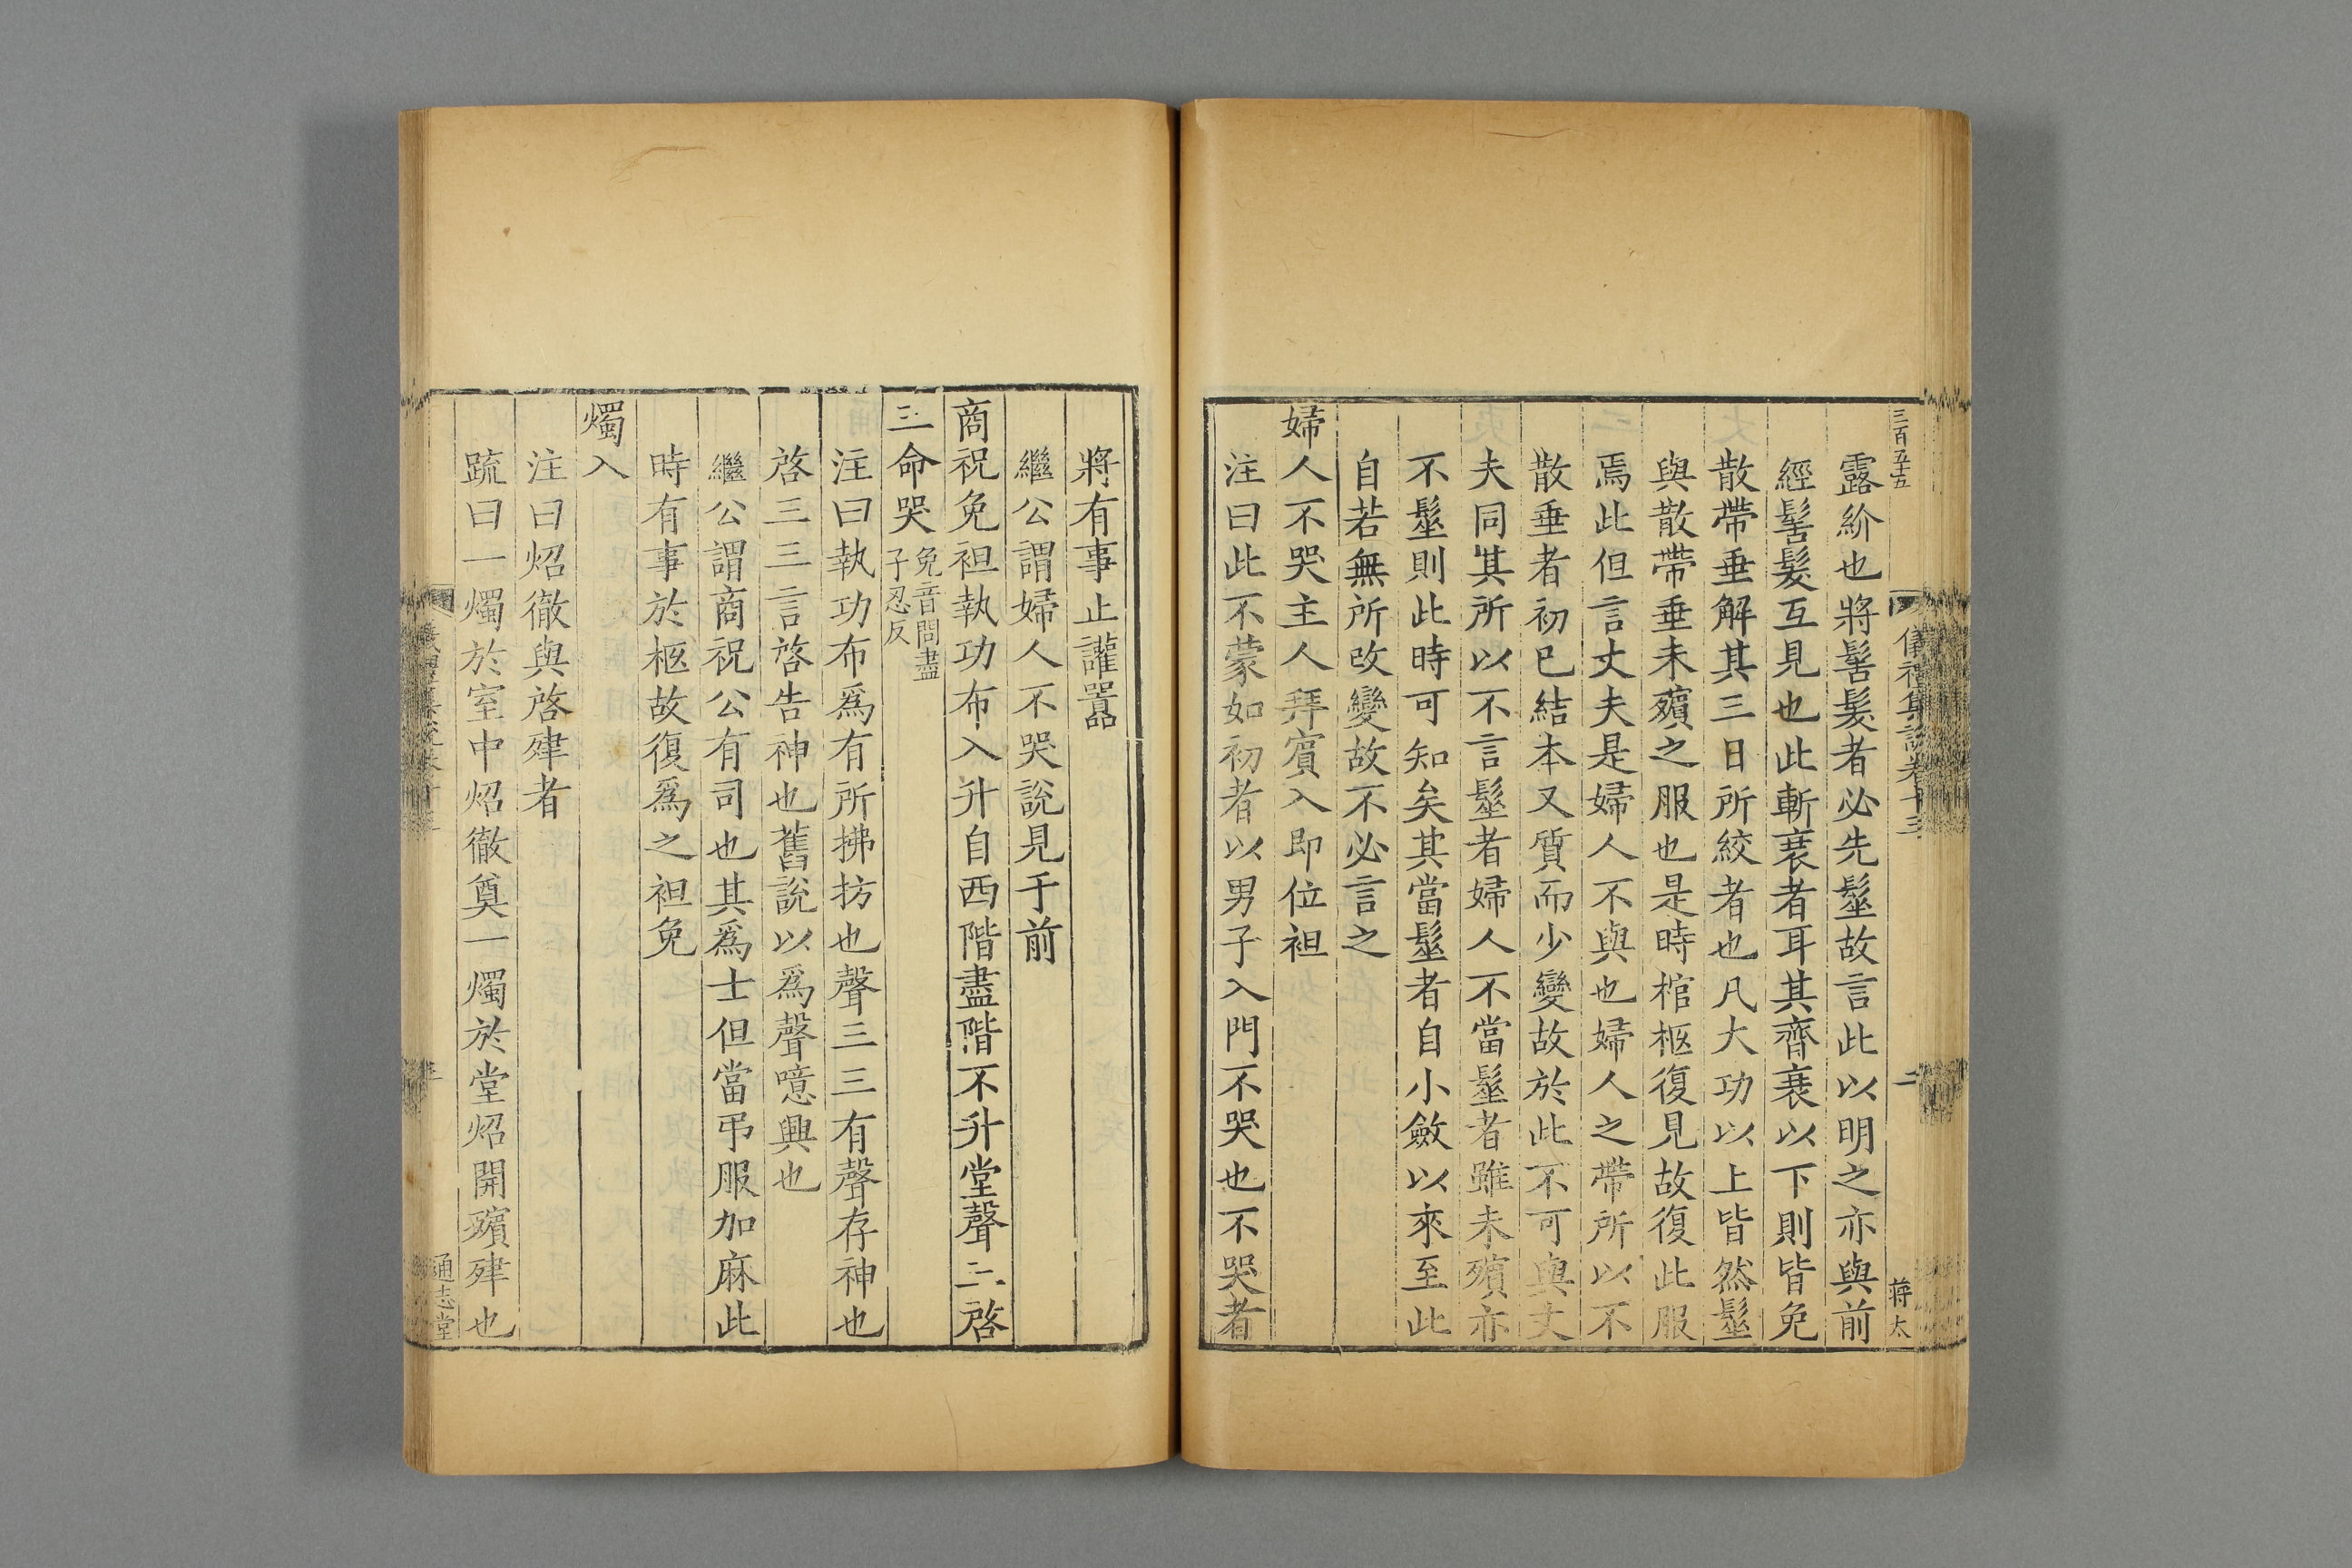 三百五十五
儀禮集說卷十三
二
蔣太
露紒也將髺髮者必先髽故言此以明之亦與前
經髺髮互見也此斬衰者耳其齊衰以下則皆免
散帶垂解其三日所絞者也凡大功以上皆然髽
與散帶垂未殯之服也是時棺柩復見故復此服
焉此但言丈夫是婦人不與也婦人之帶所以不
散垂者初已結本又質而少變故於此不可與丈
夫同其所以不言髽者婦人不當髽者雖未殯亦
不髽則此時可知矣其當髽者自小斂以來至此
自若無所改變故不必言之
婦人不哭主人拜賓入即位袒
注曰此不蒙如初者以男子入門不哭也不哭者
將有事止讙囂
繼公謂婦人不哭說見于前
商祝免袒執功布入升自西階盡階不升堂聲三啓
三命哭免音問盡
子忍反
注曰執功布爲有所拂扐也聲三三有聲存神也
啓三三言啓告神也舊說以爲聲噫興也
繼公謂商祝公有司也其爲士但當弔服加麻此
時有事於柩故復爲之袒免
燭入
注曰炤徹與啓肂者
疏曰一燭於室中炤徹奠一燭於堂炤開殯肂也
通志堂